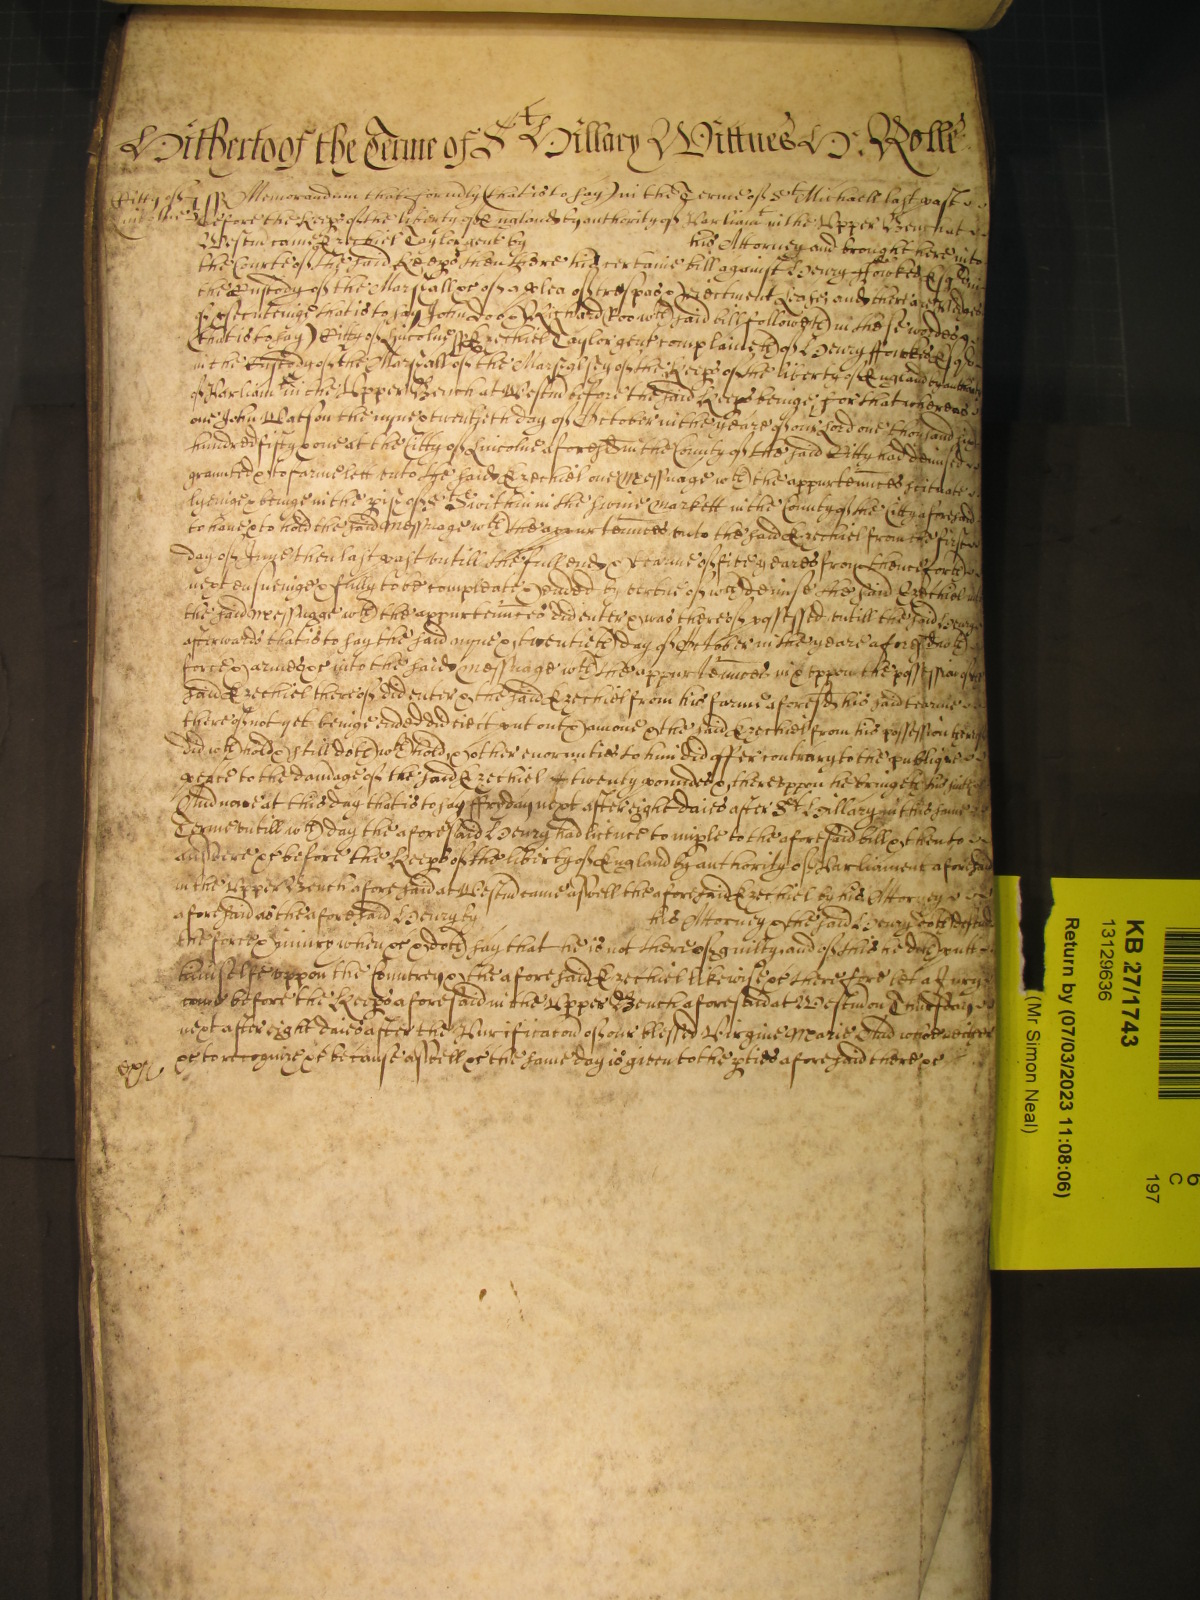 Hitherto of the Terme of St Hillary Wittnes H: Rolle
Citty of Lincolne ss Memorandum that formerly (that is to say) in the Terme of St Michaell last past
before the Keeps of the liberty of England by authority of Parliamt in the Upper Bench at
Westm came Ezechiel Taylor gent by his Attorney and brought here into
the Courte of the said Keeps then there his certaine bill against Henry Fowkes Esq
the Custody of the Marshall &c of a plea of trespas & eiectment Leases and there are pledges
of psecutinge that is to say John Doo & Richard Roo wch said bill followeth in these wordes
(that is to say) Citty of Lincolne ss Ezechiel Taylor gent complaineth of Henry Fowkes Esq
in the Custody of the Marshall of the Marshalsey of the Keeps of the liberty of England by authority
of Parliam in the Upper Bench at Westm before the said Keeps beinge for that whereas
one John Watson the nyne & twentieth day of October in the yeare of our Lord one thousand six
hundred fifty & one at the Citty of Lincolne aforesd in the County of the said Citty had demised
graunted & to farme lett unto the said Ezechiel one Messuage wth the appurtennces scituate
lyeinge & beinge in the pish of St Swithin in the swine Markett in the County of the Citty aforesaid
to have & to hold the said Messuage wth the appurtennces unto the said Ezechiel from the first
day of June then last past untill the full end & tearme of five yeares from thenceforth
next ensueinge & fully to be compleate & ended by vertue of wch demise the said Ezechiel into
the said Messuage wth the appurtennces did enter & was thereof possessed untill the said Henry
afterwards that is to say the said nyne & twentieth day of October in the yeare aforesd wth
force & armes &c into the said Messuage wth the appurtennces in & uppon the possession of the
said Ezechiel thereof did enter & the said Ezechiel from his farme aforesd his said tearme
thereof not yet beinge ended did eiect put out & amove & the said Ezechiel from his possession thereof
did wthhold & still doth wthhold & other enormities to him did offer contrary to the publique
peace to the damage of the said Ezechiel twenty poundes & thereuppon he bringeth his suite
And nowe at this day that is to say Fryday next after eight daies after St Hillary in this same
Terme untill wch day the aforesaid Henry had licence to imple to the aforesaid bill & then to
answere &c before the Keeps of the liberty of England by authority of Parliament aforesaid
in the Upper Bench aforesaid at Westm came aswell the aforesaid Ezechiel by his Attorney
aforesaid as the aforesaid Henry by his Attorney & the said Henry doth defend
the force & iniury when &c & doth say that he is not thereof guilty and of this he doth putt
himselfe uppon the Countrey & the aforesaid Ezechiel likewise &c therefore let a Jury
come before the Keeps aforesaid in the Upper Bench aforesaid at Westm on Thursday
next after eight daies after the Purificacon of our blessed Virgine Marie And who neither
&c to recognize &c because aswell &c the same day is given to the pties aforesaid there &c
KB 27/1743
13129636
Return by (07/03/2023 11:08:06)
(Mr Simon Neal)
6
C
197